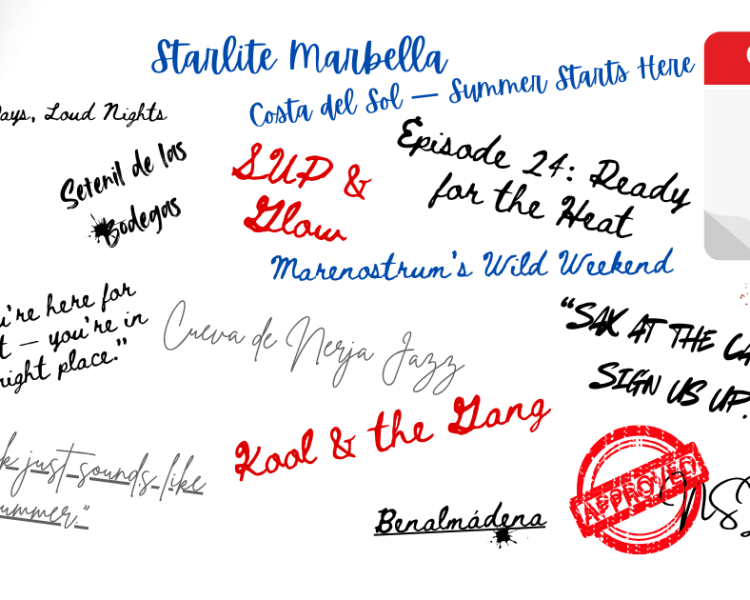 Starlite Marbella
Costa del Sol — Summer Starts Here
Days, Loud Nights
Setenil de las
Bodegas
SUP &
Glow
Episode 24: Ready
for the Heat
Marenostrum's Wild Weekend
're here for
— you're in
right place."
Cueva de Nerja Jazz
"SAX AT THE
SIGN US UP.
just sounds like
summer."
Kool & the Gang
APPROVED
Benalmádena